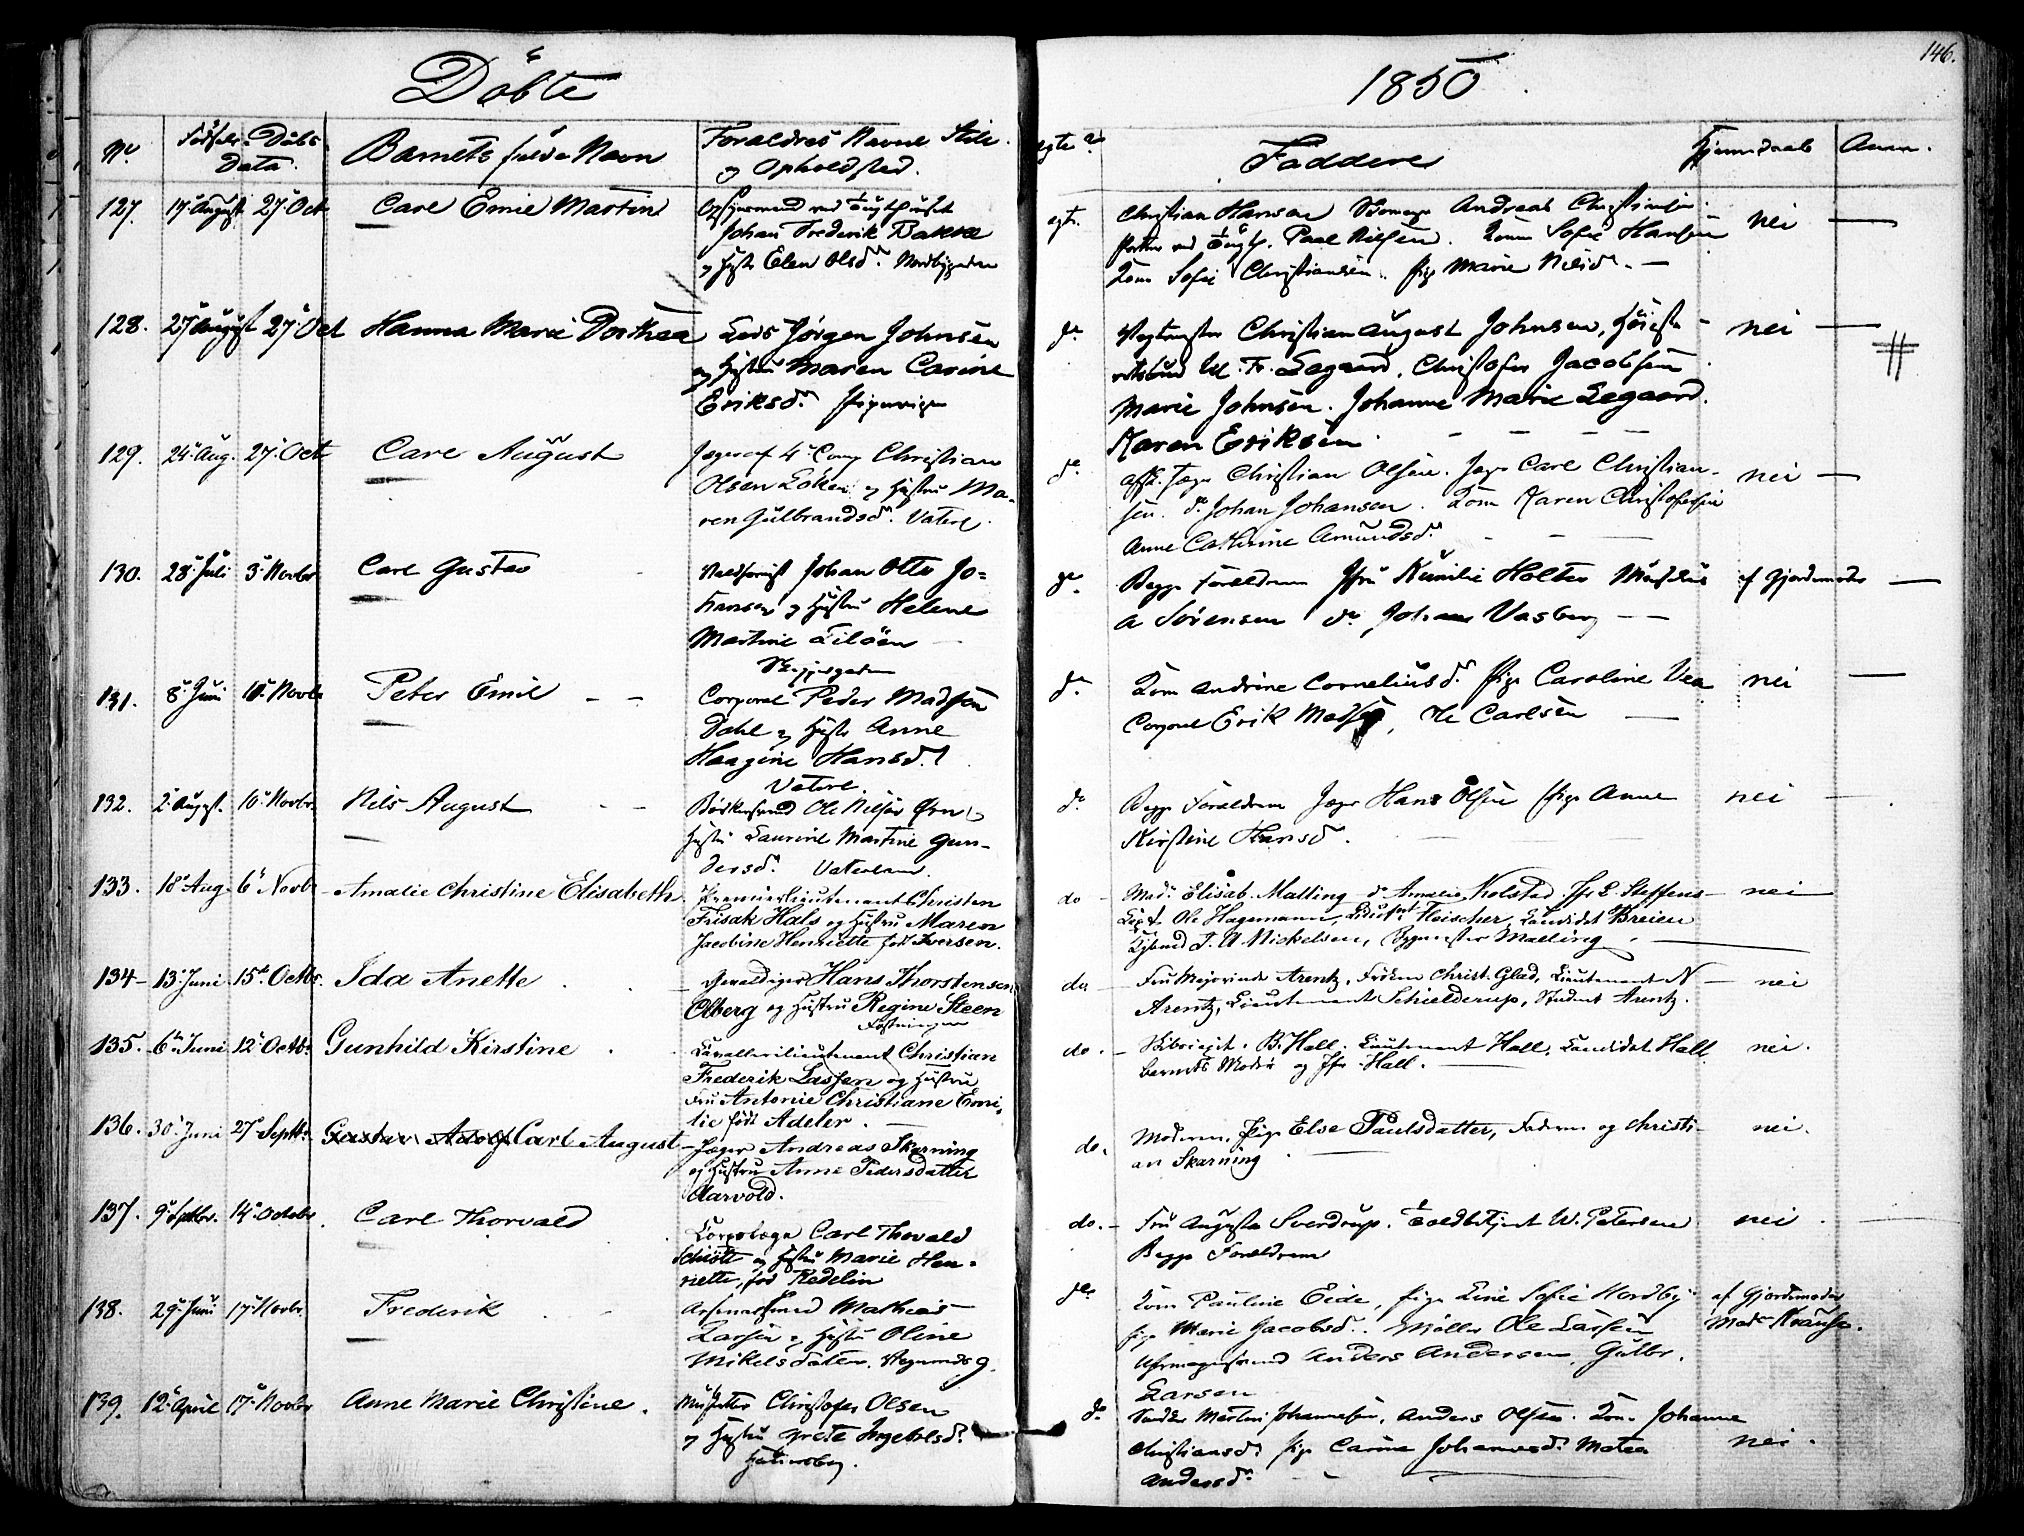 Döbte
1850
146.
No
Födsels Döbs
Data.
Barnets fulde Navn
Forældres Navne Stilr.
og Opholdsted.
ægte?
Faddere
Hjemdaab
Anm.
127. 17 August 27 Oct Carl Emil Martin
Opsynsmand ved Tugthuset
Johan Frederik Bakke
og Hustr Elen Olsd. Nordbygaden
ægt.
Christian Hansen Andreas Christiansen
ved Tugth. Paul Nilsen. Kone Sofie Hansen
Kone Sofie Christiansen. Pige Marie Nilsd. —
nei —
128. 27 August 27 Oct Hanna Marie Dorthea
Lods Jörgen Johnsen
og Hustru Maren Carine
Eriksd.
do
Christian August Johnsen, Höieste-
retsbud M. Fr. Legaard, Christofer Jacobsen
Marie Johnsen. Johanne Marie Legaard.
Karen Eriksen.
nei —
129. 24 Aug. 27 Oct Carl August
Jæger af 4 Comp Christian
Olsen Löken og Hustru Ma-
ren Gulbrandsd. Vaterl.
do
Afsk. Jæger Christian Olsen. Jæger Carl Christian-
sen. do Johan Johansen. Kone Karen Christofersen
Anne Cathrine Amundsd.
nei —
130. 28 Juli 3 Novbr Carl Gustav
Johan Otto Jo-
hansen og Hustru Helene
Martine Tilöen
do
Begge Forældrene Jfru Kunilie Holter
A Sörensen do Johan Vasberg
af Gjordemoder —
131. 8 Juni 10 Novbr Peter Emil
Corporal Peder Madsen
Dahl og Hustr Anne
Haagine Hansd.
Vaterl.
do
Kone Andrine Corneliusd. Pige Caroline
Corporal Erik Madsen, Ole Carlsen
nei —
132. 2 August. 10 Novbr. Nils August
Ole Nilsen Örn og
Hustru Laurine Martine Gun-
dersd. Vaterland.
do
Begge Forældrene Jæger Hans Olsen Pige Anne
Kirstine Hansd.
nei
133. 18 Aug. 6 Novbr Amalie Christine Elisabeth
Premierlieutenant Christen
Friisak Hals og Hustru Maren
Jacobine Henriette født Iversen.
do
Mad. Elisab. Malling do Amalie Kolstad. Jfr E. Steffens
Ole Hagemann, Fleischer, Kandidat Breien
Kjøbmd J. A Mickelsen, Bygmester Malling.
nei
134 13 Juni 15 Octbr. Ida Anette
Gevaldiger Hans Thorstensen
Olberg og Hustru Regine Steen
Fæstningen
do
Fru Majorinde Arentz, Fröken Christ. Glad, Lieutenant N
Arentz, Lieutenant Schielderup, Student Arentz.
nei
135. 6 Juni 12 Octbr. Gunhild Kirstine
Cavallerilieutenant Christian
Frederik Lassen og Hustru
Fru Antonie Christiane Emi-
lie født Adeler.
do.
B. Hall. Lieutenant Hall, Kandidat Hall
Barnets Moder og Jfr Hall.
nei.
136. 30 Juni 27 Septbr. Gustav Adolf Carl August
Jæger Andreas Skarning
og Hustru Anne Pedersdatter
Aarvold.
do.
Moderen, Pige Else Paulsdatter, Faderen og Christi-
an Skarning
nei.
137. 9 Septbr. 14 Octobr. Carl Thorvald
Corpslæge Carl Thorvald
Schiött og Hustru Marie Hen-
riette, föd Redelin
do.
Fru Augusta Sverdrup. Toldbetjent W. Petersen
Begge Forældrene
nei.
138. 29 Juni 17 Novbr. Frederik
Arsenalsmd Mathias
Larsen og Hustru Oline
Mikelsdatter.
do
Kone Pauline Eide, Pige Line Sofie Nordby
Pige Marie Jacobsd. Möller Ole Larsen
Anders Andersen, Gulbr.
Larsen
af Gjordemoder
Mad. Krause.
139. 12 April 17 Novbr Anne Marie Christine.
Christofer Olsen
og Hustru Grete Ingebrigtsd.
do
Martin Johannesen, Anders Olsen. Kone Johanne
Christiansd. Pige Carine Johannesd. Matea
Andersd.
nei.